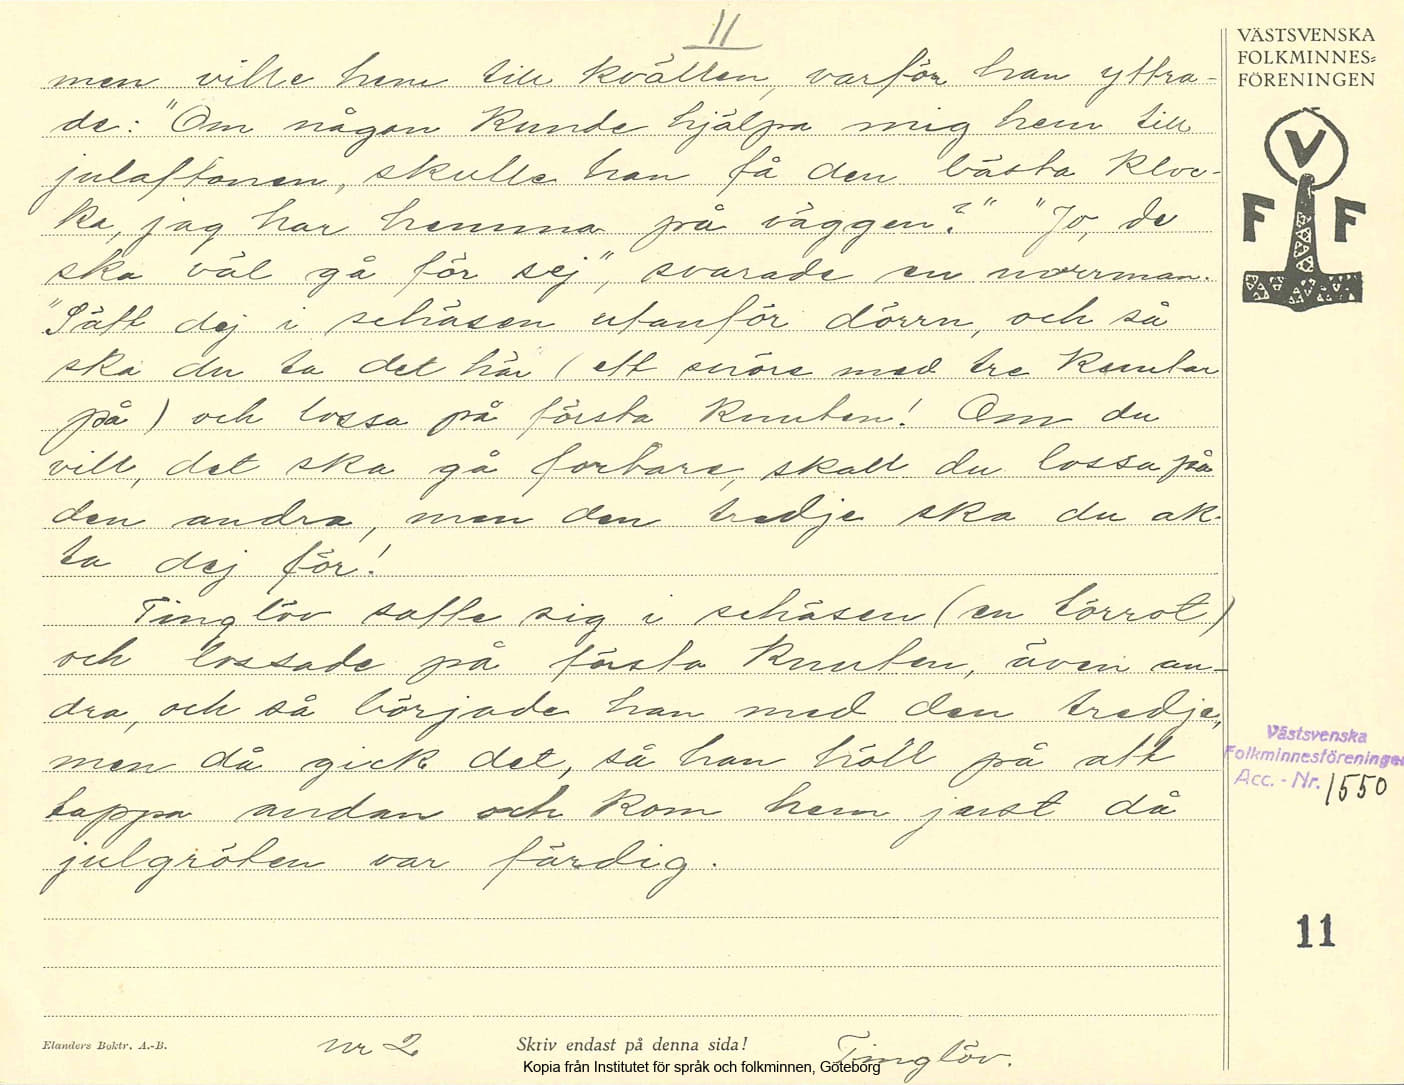 11
men ville hem till kvällen, varför han yttra-
de: "Om någon kunde hjälpa mig hem till
julaftonen, skulle han få den bästa kloc-
ka, jag har hemma på väggen?" "Jo, de
ska väl gå för sej", svarade en norrman.
"Sätt dej i schäsen utanför dörrn, och så
ska du ta det här (ett snöre med tre knutar
på) och lossa på första knuten! Om du
vill, det ska gå fortare, skall du lossa på
den andra, men den tredje ska du ak-
ta dej för!
Tinglöv satte sig i schäsen (en törrot)
och lossade på första knuten, även an-
dra, och så började han med den tredje,
men då gick det, så han höll på att
tappa andan och kom hem just då
julgröten var färdig.
VÄSTSVENSKA
FOLKMINNES-
FÖRENINGEN
V
F F
Västsvenska
Folkminnesföreningen
Acc. - Nr. 1550
11
Elanders Boktr. A.-B.
nr 2
Skriv endast på denna sida!
Tinglöv.
Kopia från Institutet för språk och folkminnen, Göteborg